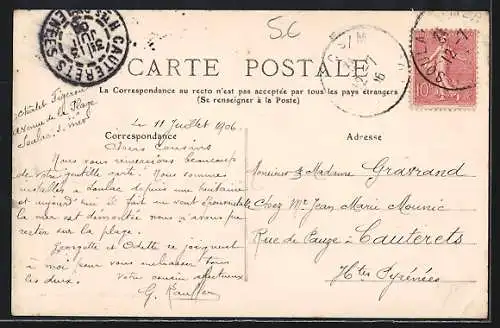 5c
CAUTERETS
CARTE POSTALE
La Correspondance au recto n'est pas acceptée par tous les pays étrangers
(Se renseigner à la Poste)
Chalet
avenue de la Plage
Soulac s. mer
10
Le 11 Juillet 1906
Correspondance
Adresse
Chers cousins
Nous vous remercions beaucoup
de votre gentille carte. Nous sommes
installés à Soulac depuis une huitaine
et aujourd'hui il fait un vent épouvantable
la mer est démontée nous n'avons pu
rester sur la plage.
Georgette et Odette se joignent
à moi pour vous embrasser tous
les deux.
Votre cousin affectueux
G.
Monsieur & Madame Gravrand
Chez Mr Jean Marie Mounic
Rue de Pauze - Cauterets
Htes Pyrénées